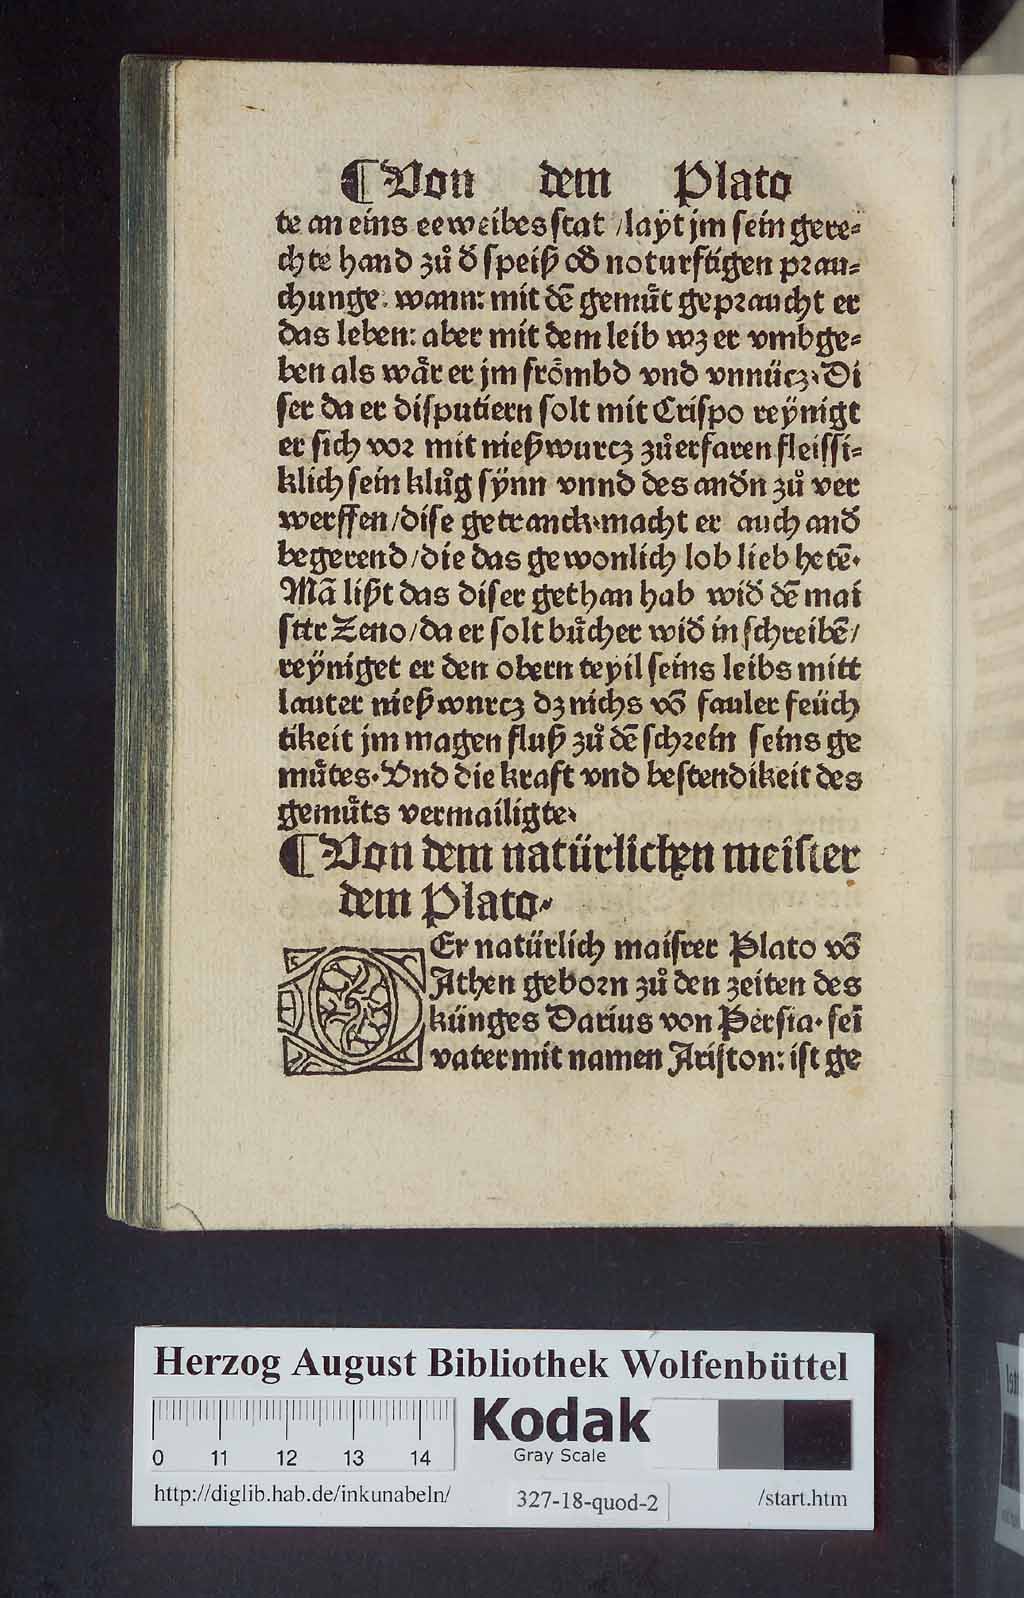 ¶ Von dem Plato
te an eins eeweibes stat / layt jm sein gere⸗
chte hand zů d̕ speiß od̕ noturftigen prau⸗
chunge. wann: mit dē gemuͤt gepraucht er
das leben: aber mit dem leib wz er vmbge⸗
ben als waͤr er jm froͤmbd vnd vnnücz. Di
ser da er disputiern solt mit Crispo reÿnigt
er sich vor mit nießwurcz zů erfaren fleissi⸗
klich sein klůg sÿnn vnnd des and̕n zů ver
werffen / dise getranck. macht er auch and̕
begerend / die das gewonlich lob lieb hetē.
Mā lißt das diser gethan hab wid̕ dē mai
ster Zeno / da er solt buͤcher wid̕ in schreibē /
reÿniget er den obern teyil seins leibs mitt
lauter nießwurcz dz nichs vō fauler feüch
tikeit jm magen fluß zů dē schrein seins ge
muͤtes. Vnd die kraft vnd bestendikeit des
gemuͤts vermailigte.
¶ Von dem natürlichen meister
dem Plato.
DEr natürlich maister Plato vō
Athen geborn zů den zeiten des
künges Darius von Persia. sei
vater mit namen Ariston: ist ge
Herzog August Bibliothek Wolfenbüttel
Kodak
Gray Scale
0 11 12 13 14
http://diglib.hab.de/inkunabeln/ 327-18-quod-2 /start.htm